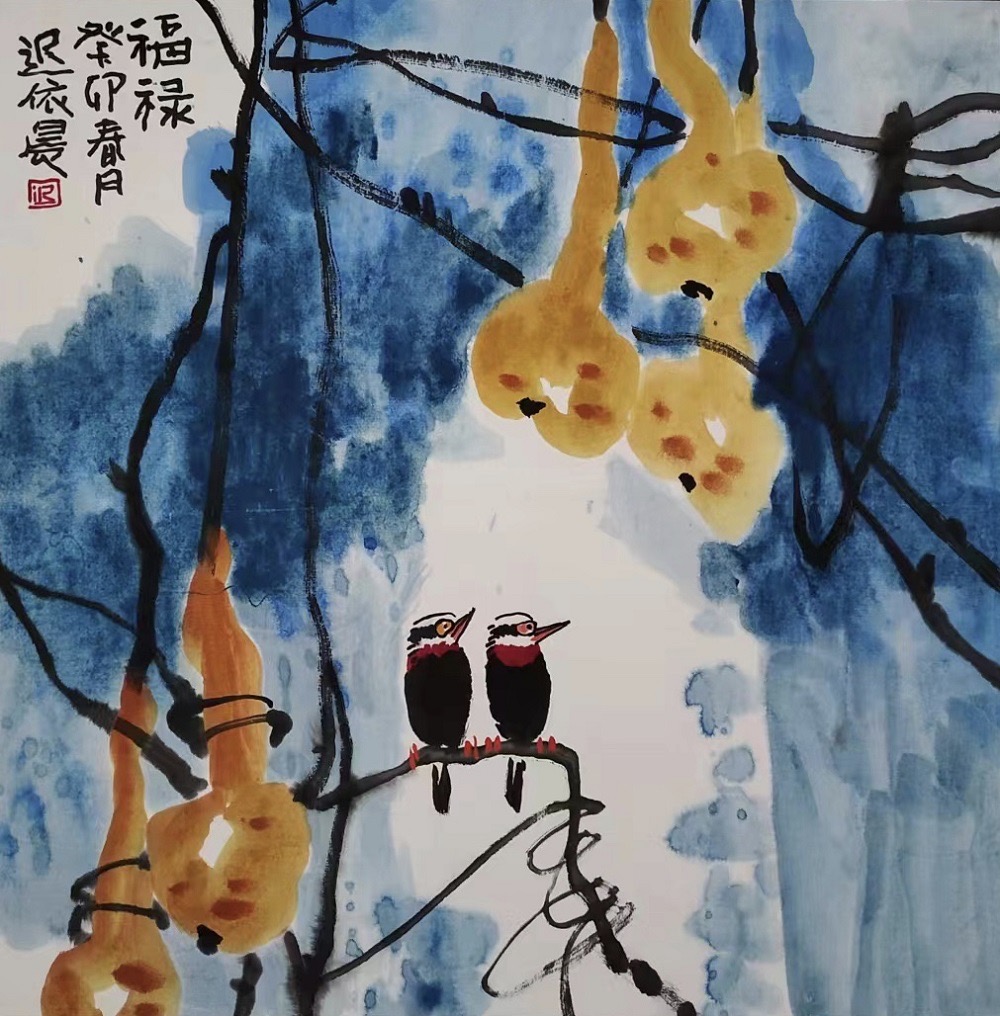 福禄
癸卯春月
迟依晨